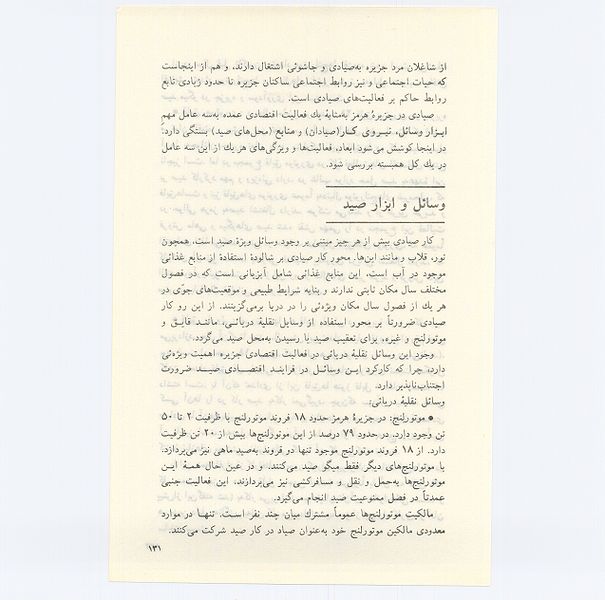 از شاغلان مرد جزیره به‌صیادی و جاشوئی اشتغال دارند، و هم از اینجاست
که حیات اجتماعی و نیز روابط اجتماعی ساکنان جزیره تا حدود زیادی تابع
روابط حاکم بر فعالیت‌های صیادی است.
صیادی در جزیرهٔ هرمز به‌مثابهٔ یك فعالیت اقتصادی عمده به‌سه عامل مهم
ابزار وسائل، نیروی کار(صیادان) و منابع (محل‌های صید) بستگی دارد.
در اینجا کوشش می‌شود ابعاد، فعالیت‌ها و ویژگی‌های هر یك از این سه عامل
در یك کل همبسته بررسی شود.
وسائل و ابزار صید
کار صیادی بیش از هر چیز مبتنی بر وجود وسائل ویژهٔ صید است، همچون
تور، قلاب و مانند این‌ها. محور کار صیادی بر شالودهٔ استفاده از منابع غذائی
موجود در آب است. این منابع غذائی شامل آبزیانی است که در فصول
مختلف سال مکان ثابتی ندارند و بنابه شرایط طبیعی و موقعیت‌های جوّی در
هر یك از فصول سال مکان ویژه‌ئی را در دریا برمی‌گزینند. از این رو کار
صیادی ضرورتاً بر محور استفاده از وسایل نقلیهٔ دریائی، مانند قایق و
موتورلنج و غیره، برای تعقیب صید یا رسیدن به‌محل صید می‌گردد.
وجود این وسائل نقلیهٔ دریائی در فعالیت اقتصادی جزیره اهمیت ویژه‌ئی
دارد، چرا که کارکرد این وسائل در فرایند اقتصادی صید ضرورت
اجتناب‌ناپذیر دارد.
وسائل نقلیهٔ دریائی:
● موتورلنج: در جزیرهٔ هرمز حدود ۱۸ فروند موتورلنج با ظرفیت ۲ تا ۵۰
تن وجود دارد. در حدود ۷۹ درصد از این موتورلنج‌ها بیش از ۲۰ تن ظرفیت
دارد. از ۱۸ فروند موتورلنج موجود تنها دو فروند به‌صید ماهی نیز می‌پردازد.
با موتورلنج‌های دیگر فقط میگو صید می‌کنند. و در عین حال همهٔ این
موتورلنج‌ها به‌حمل و نقل و مسافرکشی نیز می‌پردازند. این فعالیت جنبی
عمدتاً در فصل ممنوعیت صید انجام می‌گیرد.
مالکیت موتورلنج‌ها عموماً مشترك میان چند نفر است. تنها در موارد
معدودی مالکین موتورلنج خود به‌عنوان صیاد در کار صید شرکت می‌کنند.
۱۳۱